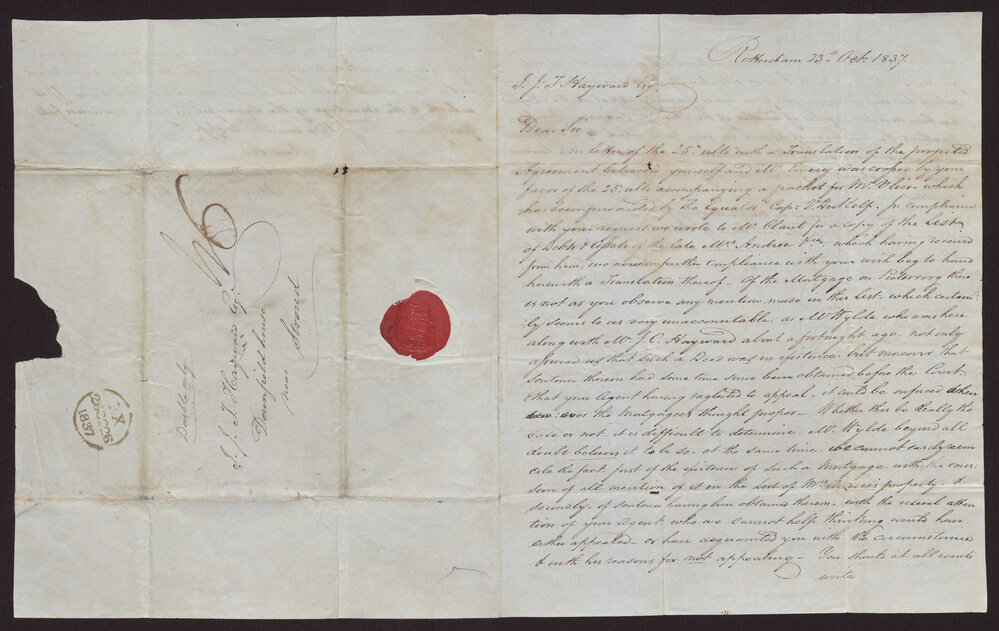 Double only
J. J. T. Hayward Esqr.
Downfield house
near
Stroud
1837
Rotterdam 23rd Octr. 1837.
J. J. T Hayward Esqr.
Dear Sir
Our letter of the 25th ulto with a Translation of the projected
Agreement between yourself and Mr. Emery was crossed by your
favor of the 25 ulto accompanying a packet for Mr. Vlier which
has been forwarded by "The Equator" Capt:
with your request we wrote to Mr. for a copy of the List
of Debts & Effects of the late Mrs. Andree which having received
from him, we now in further Compliance with your wish beg to hand
herewith a Translation thereof - Of the Mortgage on there
is not as you observe any mention made in this List. which certain-
ly seems to us very unaccountable, as Mr Wylde who was here
along with Mr. J. C. Hayward about a fortnight ago. not only
assured us that such a Deed was in existence. but moreover that
sentence thereon had some time since been obtained before the Court
& that your Agent having neglected to appeal. it could be enforced
the Mortgagee thought proper - Whether this be really the
case or not, it is difficult to determine. Mr. Wylde beyond all
doubt believes it to be so. at the same time. we cannot easily recon-
cile the fact, first of the existence of such a Mortgage. with the omis-
sion of all mention of it in the List of Mrs. Andree's property. &
secondly. of sentence having been obtained thereon. with the usual atten-
tion of your Agent, who we cannot help thinking would have
either appealed - or have acquainted you with the circumstance
& with his reasons for not appealing - You should at all events
write